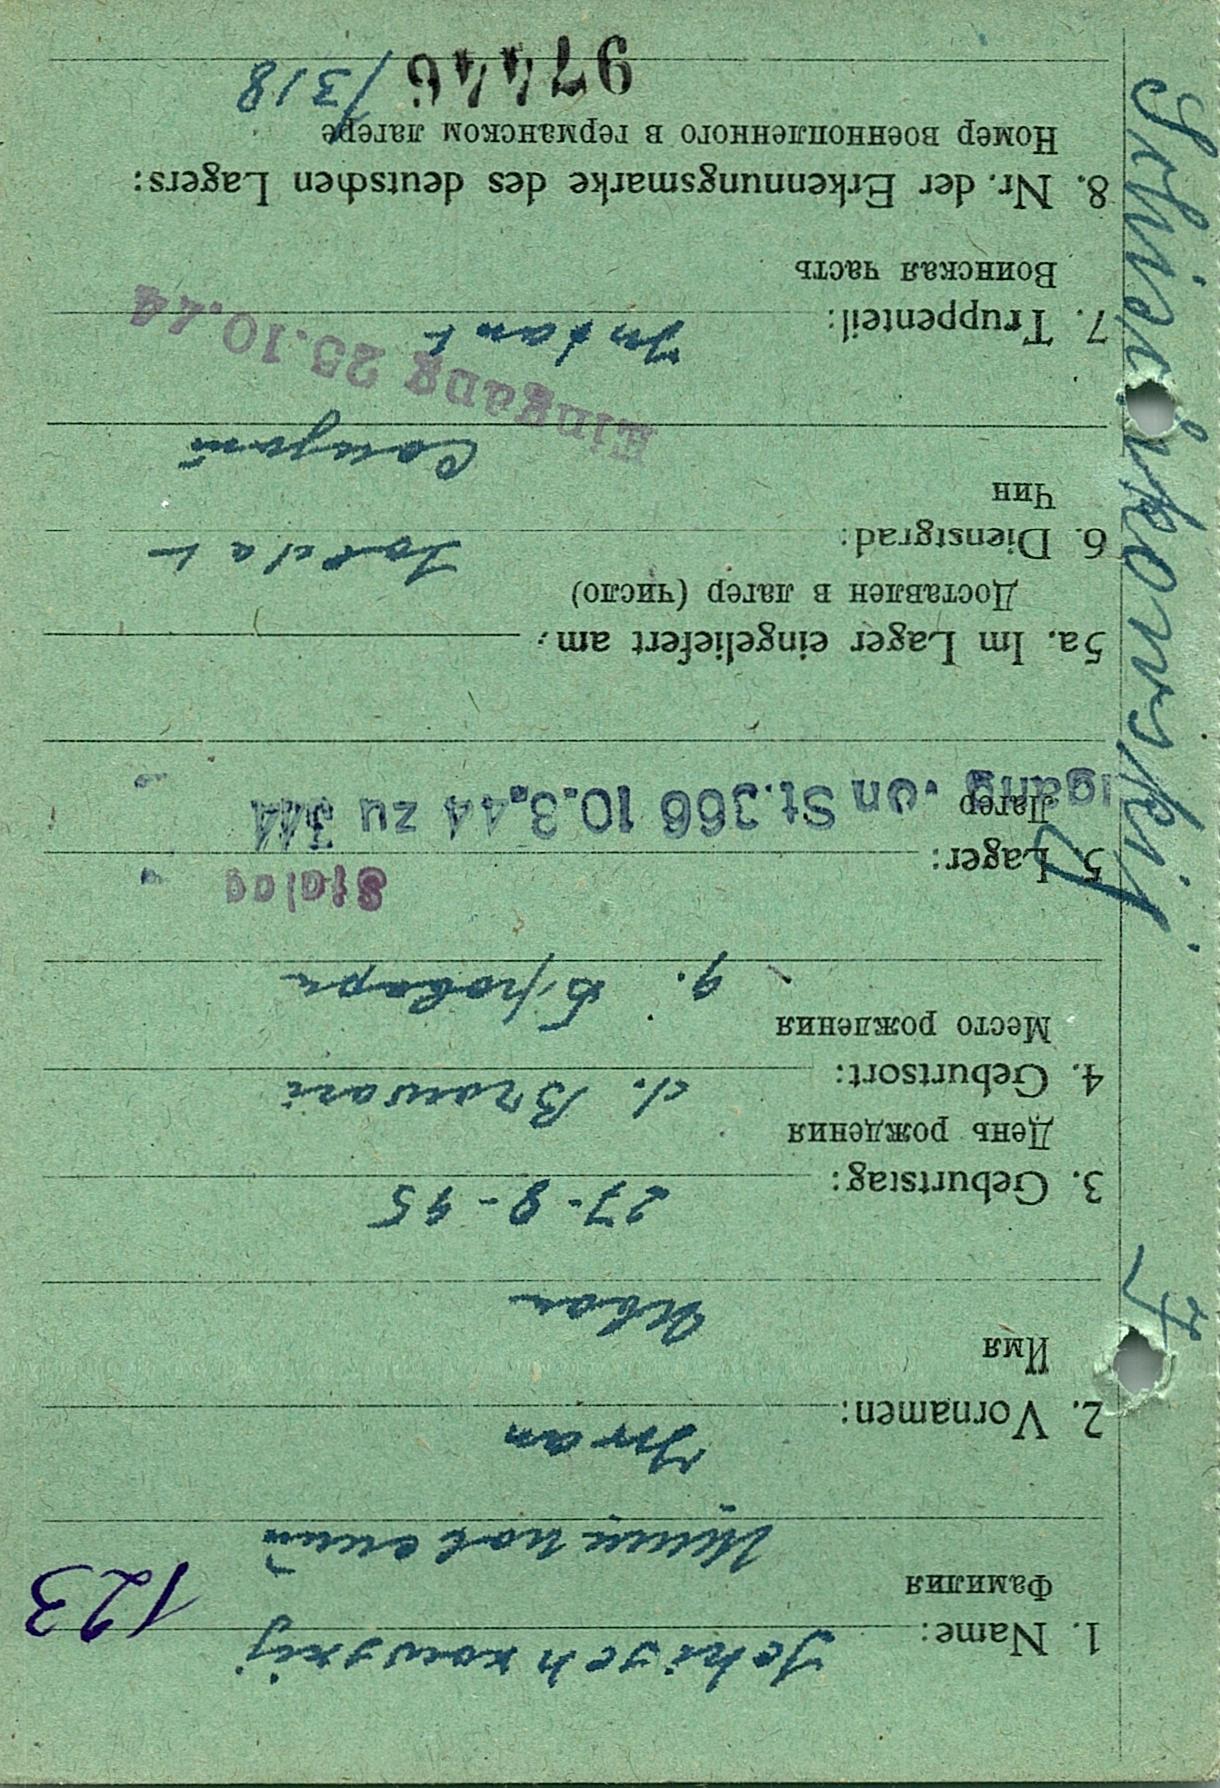 Schischkowskij J
1. Name: Schischkowskij
123
Фамилия Шишковский
2. Vornamen: Iwan
Имя Иван
3. Geburtstag: 27-8-95
День рождения
4. Geburtsort: d. Browari
Место рождения д. Бровари
5. Lager: Stalag
Лагер
St.366 10.3.44 zu 344
5a. Im Lager eingeliefert am:
Доставлен в лагер (число)
6. Dienstgrad: Soldat
Чин
Солдат
Eingang 25.10.44
7. Truppenteil: Infant
Воинская часть
8. Nr. der Erkennungsmarke des deutschen Lagers:
Номер военнопленного в германском лагере
97446 /318